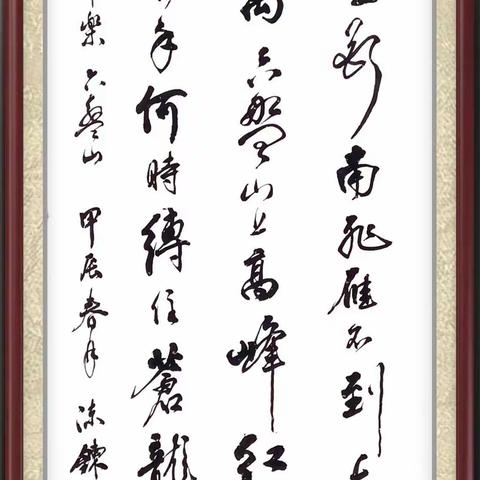 断南飛雁不到
萬六盤山上高峰紅
手何時縛住蒼龍
樂六盤山 甲辰春月